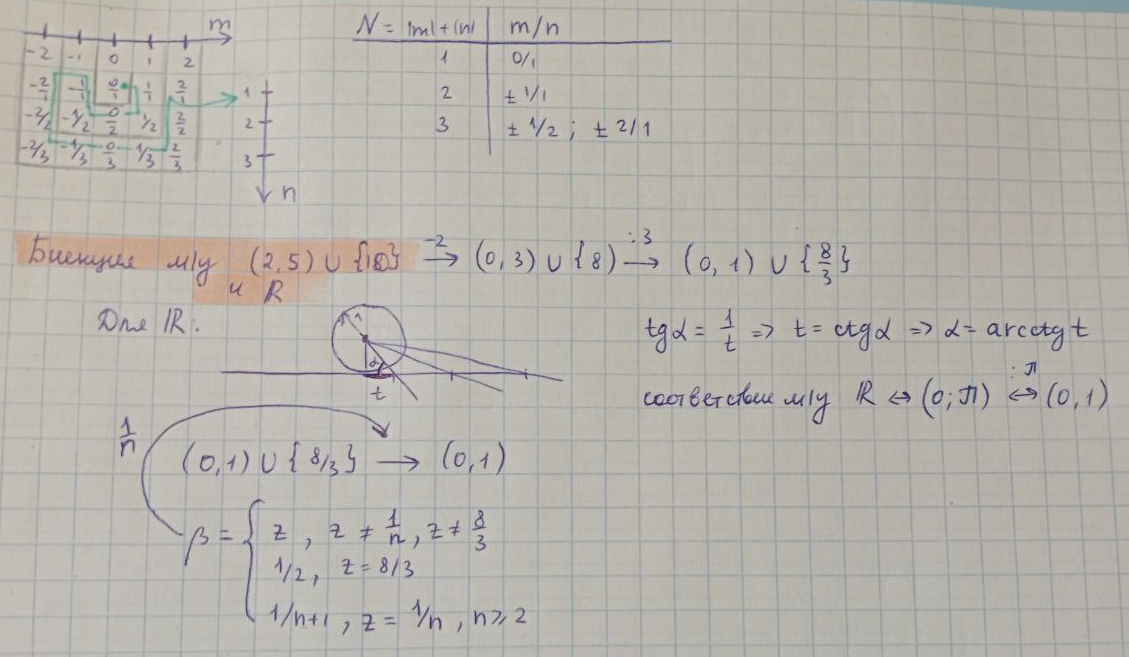 m
-2 -1 0 1 2
-2/1 -1/1 0/1 1/1 2/1
-2/2 -1/2 0/2 1/2 2/2
-2/3 -1/3 0/3 1/3 2/3
1
2
3
n
N = |m|+|n| m/n
1 0/1
2 ± 1/1
3 ± 1/2 ; ± 2/1
Биекция м/у (2,5) ∪ {10} -2 → (0,3) ∪ {8} :3 → (0,1) ∪ {8/3}
и ℝ
Для ℝ:
1
α
t
tgα = 1/t => t = ctgα => α = arcctg t
соответствие м/у ℝ ↔ (0;π) :π ↔ (0,1)
1/n
(0,1) ∪ {8/3} → (0,1)
β = { z, z ≠ 1/n, z ≠ 8/3
1/2, z = 8/3
1/n+1, z = 1/n, n ≥ 2